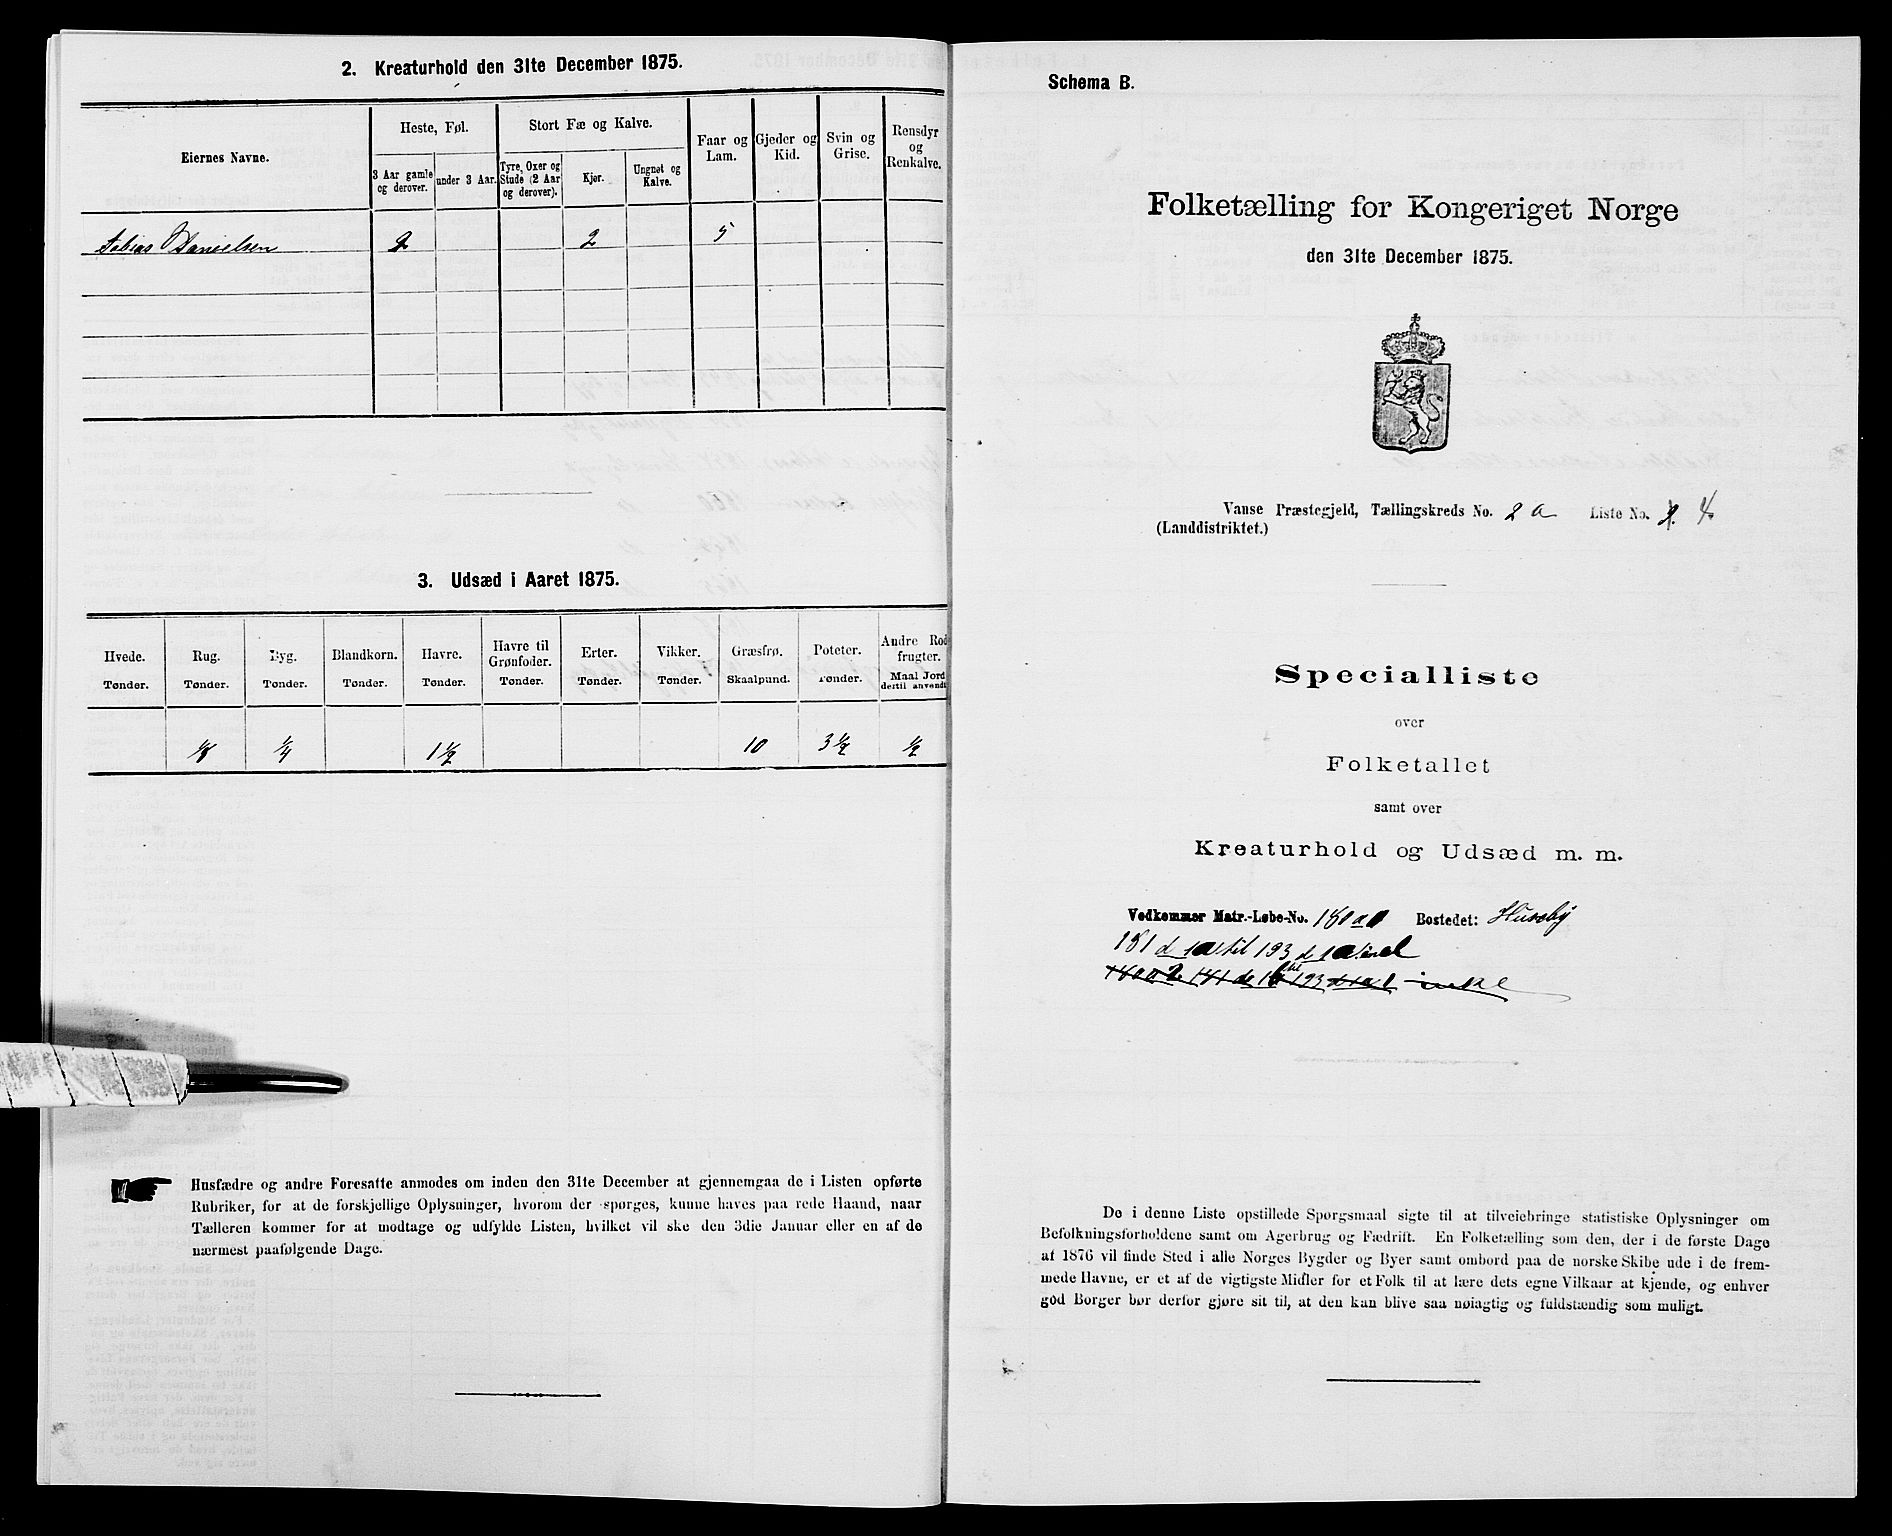 2. Kreaturhold den 31te December 1875.
Eiernes Navne.
Heste, Føl.
Stort Fæ og Kalve.
Faar og Lam.
Gjeder og Kid.
Svin og Grise.
Rensdyr og Renkalve.
3 Aar gamle og derover.
under 3 Aar.
Tyre, Oxer og Stude (2 Aar og derover).
Kjør.
Ungnøt og Kalve.
Tobias Danielsen 2 2 5
3. Udsæd i Aaret 1875.
Hvede. Rug. Byg. Blandkorn. Havre. Havre til Grønfoder. Erter. Vikker. Græsfrø. Poteter. Andre Rodfrugter.
Tønder. Tønder. Tønder. Tønder. Tønder. Tønder. Tønder. Tønder. Skaalpund. Tønder. Maal Jord dertil anvendt.
1/8 1/4 1 1/2 10 3 1/2 1/2
Husfædre og andre Foresatte anmodes om inden den 31te December at gjennemgaa de i Listen opførte
Rubriker, for at de forskjellige Oplysninger, hvorom der spørges, kunne haves paa rede Haand, naar
Tælleren kommer for at modtage og udfylde Listen, hvilket vil ske den 3die Januar eller en af de
nærmest paafølgende Dage.
Schema B.
Folketælling for Kongeriget Norge
den 31te December 1875.
Vanse Præstegjeld, Tællingskreds No. 2 a Liste No. 4
(Landdistriktet.)
Specialliste
over
Folketallet
samt over
Kreaturhold og Udsæd m. m.
Vedkommer Matr.-Løbe-No. 180 a Bostedet: Huseby
181 d til 193 d
De i denne Liste opstillede Spørgsmaal sigte til at tilveiebringe statistiske Oplysninger om
Befolkningsforholdene samt om Agerbrug og Fædrift. En Folketælling som den, der i de første Dage
af 1876 vil finde Sted i alle Norges Bygder og Byer samt ombord paa de norske Skibe ude i de frem-
mede Havne, er et af de vigtigste Midler for et Folk til at lære dets egne Vilkaar at kjende, og enhver
god Borger bør derfor gjøre sit til, at den kan blive saa nøiagtig og fuldstændig som muligt.